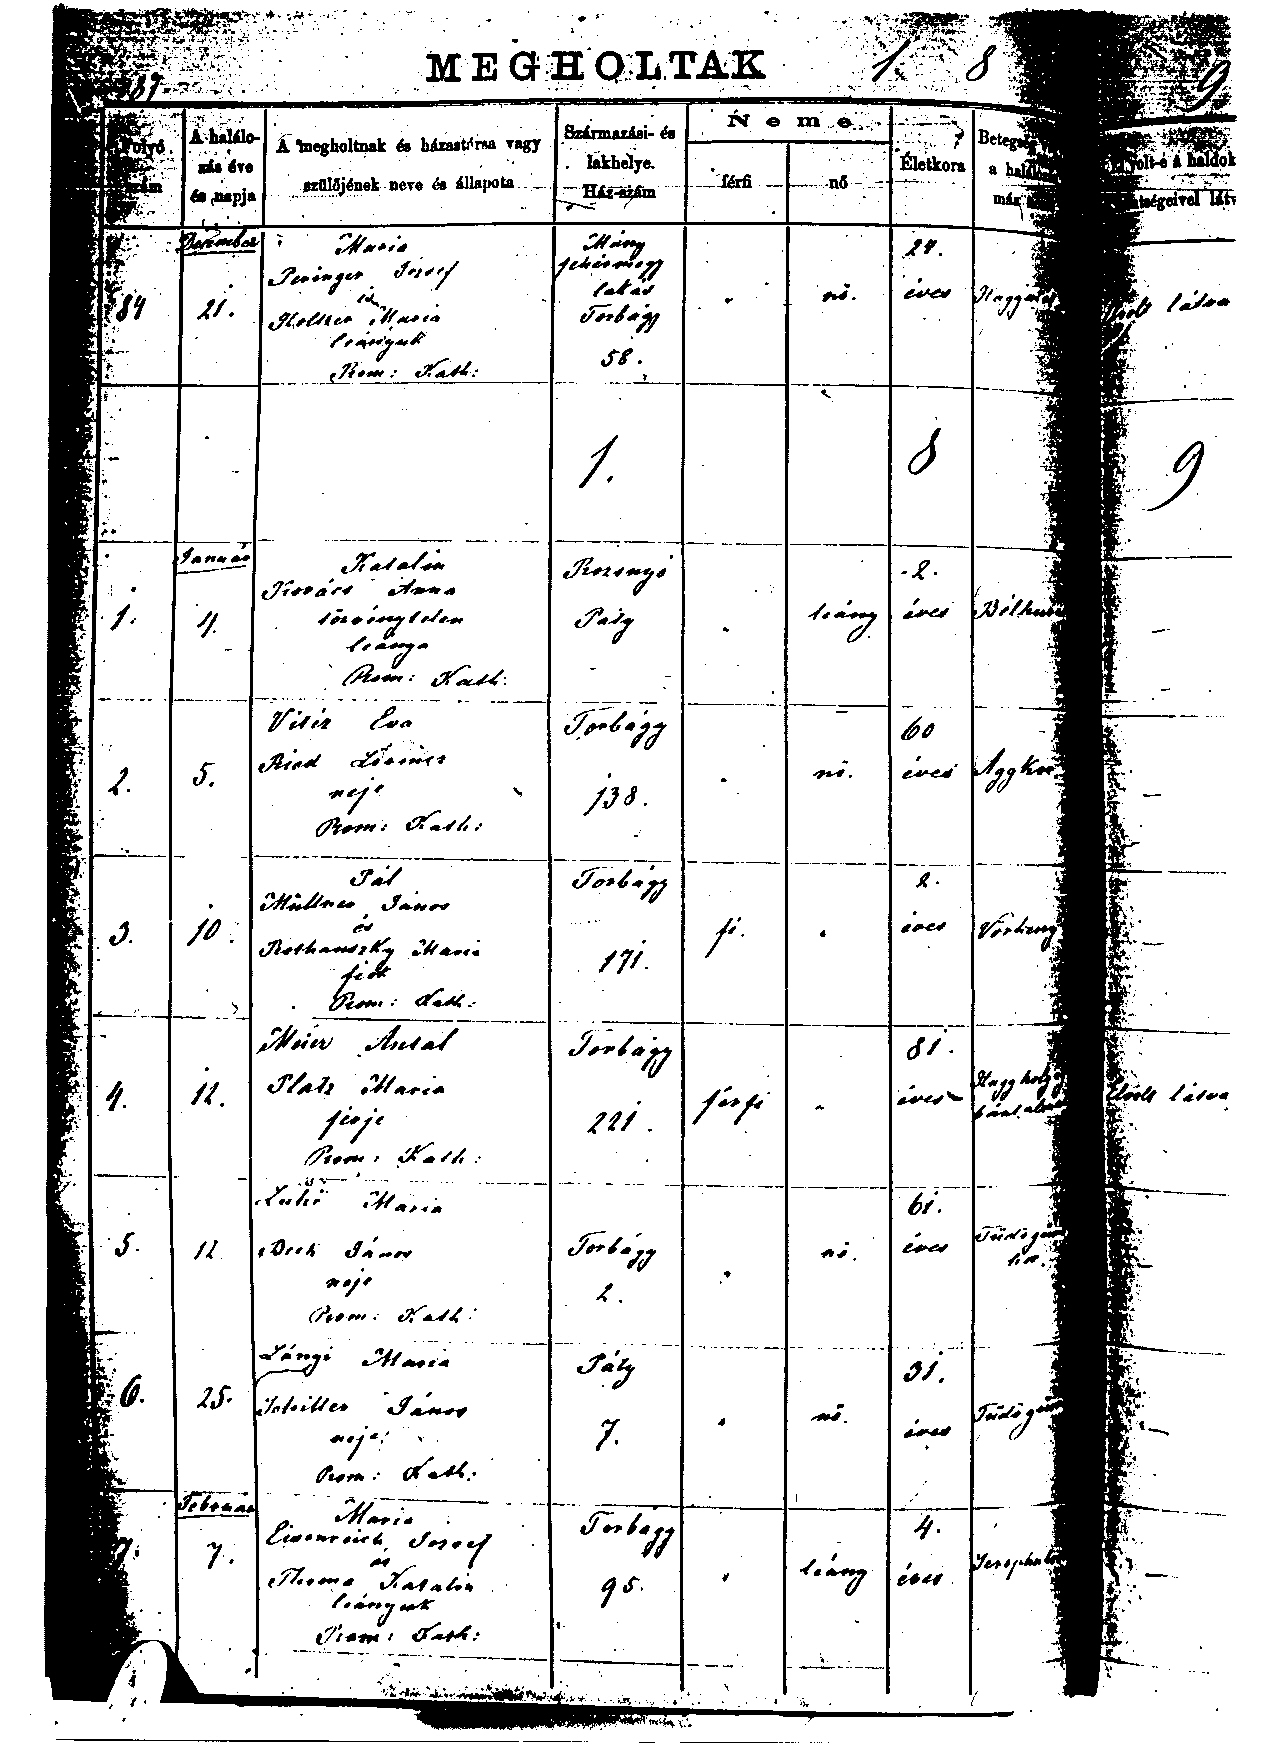 187
MEGHOLTAK 1. 8 9
Folyó szám
A halálozás éve és napja
A megholtnak és házastársa vagy szülőjének neve és állapota
Származási- és lakhelye. Ház-szám
Neme
férfi
nő
Életkora
Betegség
a halál
már
volt-e a haldok
látv
December
84
21.
Maria
Peringer József
és
Holtzer Maria
leányuk
Rom: Kath:
Mány
fehérmegy
lakás
Torbágy
58.
nő.
24.
éves
látva
1. 8 9
Január
1.
4.
Katalin
Kovács Anna
törvénytelen
leánya
Rom: Kath:
Rozsnyó
Páty
leány
2.
éves
2.
5.
Éva
Ried Lőrincz
neje
Rom: Kath:
Torbágy
138.
nő.
60
éves
3.
10.
Pál
Müllner János
és
Maria
fiok
Rom: Kath:
Torbágy
171.
fi.
2.
éves
4.
12.
Meier Antal
Platz Maria
férje
Rom: Kath:
Torbágy
221.
férfi
81.
éves
Elvolt látva
5.
12
Maria
Beck János
neje
Rom: Kath:
Torbágy
2.
nő.
61.
éves
6.
25.
Lángi Maria
János
neje
Rom: Kath:
Páty
7.
nő.
31.
éves
Február
7.
7.
Maria
Eisenreich József
és
Thoma Katalin
leányuk
Rom: Kath:
Torbágy
95.
leány
4.
éves